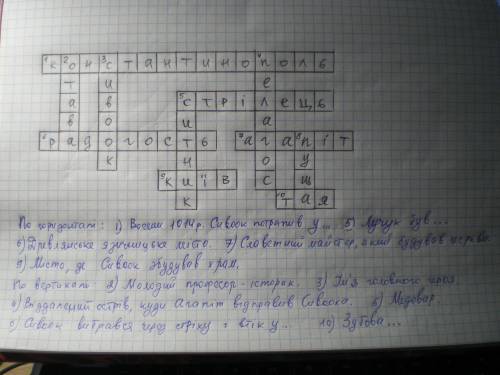 ¹К ²О Н ³С Т А Н Т И Н О ⁴П О Л Ь
Т И Е
А В ⁵С Т Р І Л Е Ц Ь
В О И А
⁶Р А Д О Г О С Т Ь ⁷А Г А ⁸П І Т
К Н О У
⁹К И Ї В С Щ
К ¹⁰Т А Я
По горизонталі: 1) Восени 1014р. Сивоок потрапив у... 5) Лучук був...
6) Древлянське язичницьке місто. 7) Славетний майстер, який будував церкви.
9) Місто, де Сивоок збудував храм.
По вертикалі 2) Молодий професор-історик. 3) Ім'я головного героя.
4) Віддалений острів, куди Агапіт відправив Сивоока. 5) Медовар.
8) Сивоок вибрався через стріху і втік у... 10) Забава...